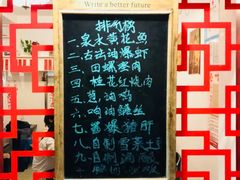 Write a better future
排行榜
一.泉水黄花鱼
二.古法油爆虾
三.回锅
四.桂花红烧肉
五.葱油鸡
六.咱油鳝丝
七.酱爆猪肝
八.自制雪菜土
九.自制